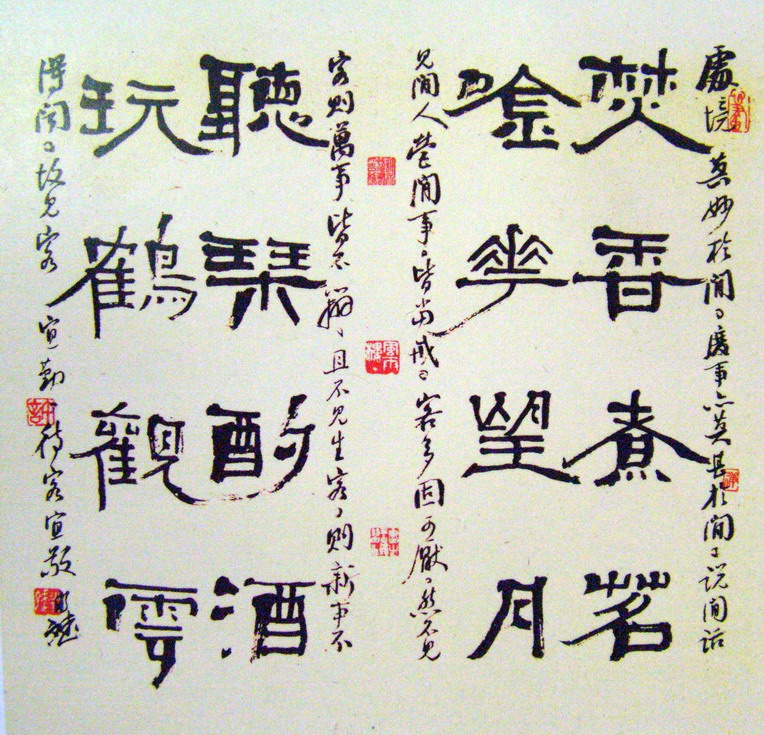 處境莫妙於閒廢事亦莫甚於閒說閒話
焚香煮茗
唫花望月
見閒人營閒事皆當戒客多固可厭然不見
客則萬事皆不辦且不見生客則新事不
聽琹酌酒
玩鶴觀雲
得聞故見客宜勤待客宜敬